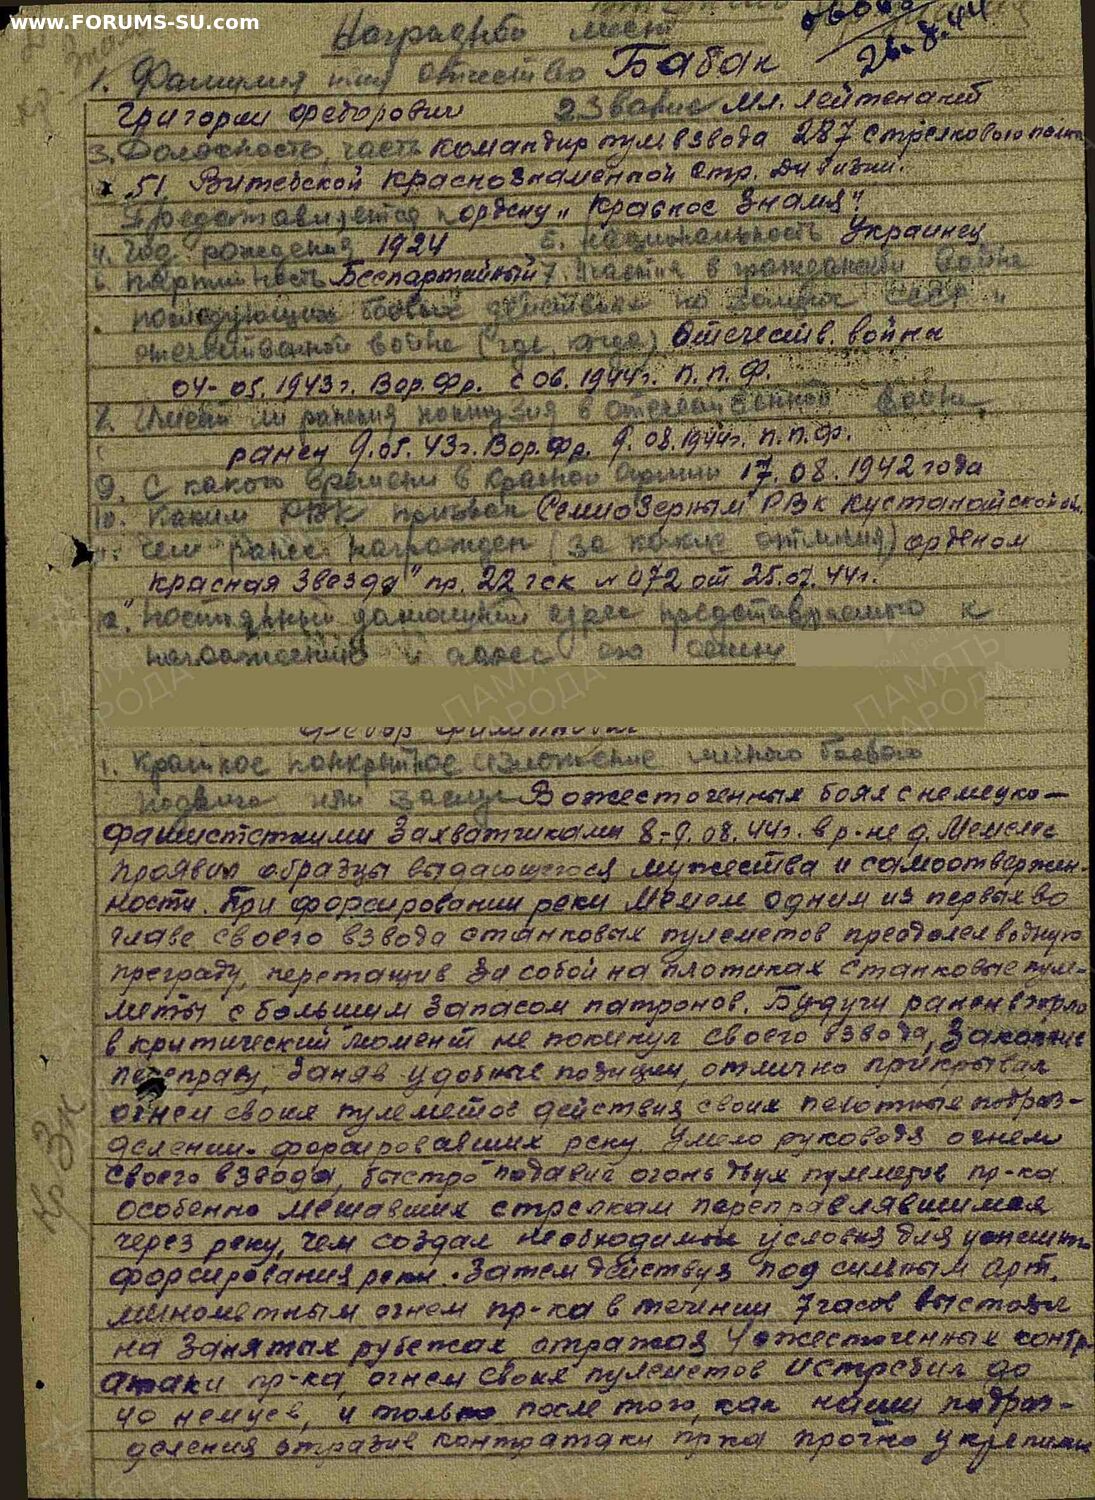 www.FORUMS-SU.com
Наградной лист
26.8.44
1. Фамилия имя отчество Бабак
Григорий Федорович 2 Звание Мл. лейтенант
3. Должность, часть командир пулвзвода 287 стрелкового полка
51 Витебской Краснознаменной стр. дивизии.
Представляется к ордену „Красное Знамя"
4. Год рождения 1924 5. национальность Украинец
6. партийность Беспартийный 7. Участия в гражданской войне
последующих боевых действиях по защите СССР и
отечественной войне (где, когда) Отечеств. война
04-05.1943г. Вор.Фр. с 06.1944г. П.П.Ф.
8. Имеет ли ранения контузия в отечественной войне
ранен 9.05.43г. Вор.Фр. 9.08.1944г. П.П.Ф.
9. С какого времени в красной армии 17.08.1942 года
10. Каким РВК призван Семиозерным РВК Кустанайской об.
11. Чем ранее награжден (за какие отличия) орденом
"Красная Звезда" пр. 22 гск № 072 от 25.07.44г.
12. Постоянный домашний адрес представляемого к
награждению и адрес его семьи
ПАМЯТЬ НАРОДА
1. Краткое конкретное изложение личного боевого
подвига или заслуг В ожесточенных боях с немецко-
фашистскими захватчиками 8-9.08.44г. в р-не д. Мемелес
проявил образцы выдающегося мужества и самоотвержен-
ности. При форсировании реки Мемел одним из первых во
главе своего взвода станковых пулеметов преодолел водную
преграду, перетащив за собой на плотиках станковые пуле-
меты с большим запасом патронов. Будучи ранен в горло
в критический момент не покинул своего взвода,
переправу, заняв удобные позиции, отлично прикрывал
огнем своих пулеметов действия своих пехотных подраз-
делений форсировавших реку. Умело руководя огнем
своего взвода, быстро подавил огонь двух пулеметов пр-ка
особенно мешавших стрелкам переправлявшимся
через реку, чем создал необходимые условия для успешн.
форсирования реки. Затем действуя под сильным арт.
минометным огнем пр-ка в течении 7 часов выстоял
на занятых рубежах отражая 4 ожесточенных контр-
атаки пр-ка, огнем своих пулеметов истребил до
40 немцев, и только после того, как наши подраз-
деления отразив контратаки пр-ка прочно укрепили
Кр Зн